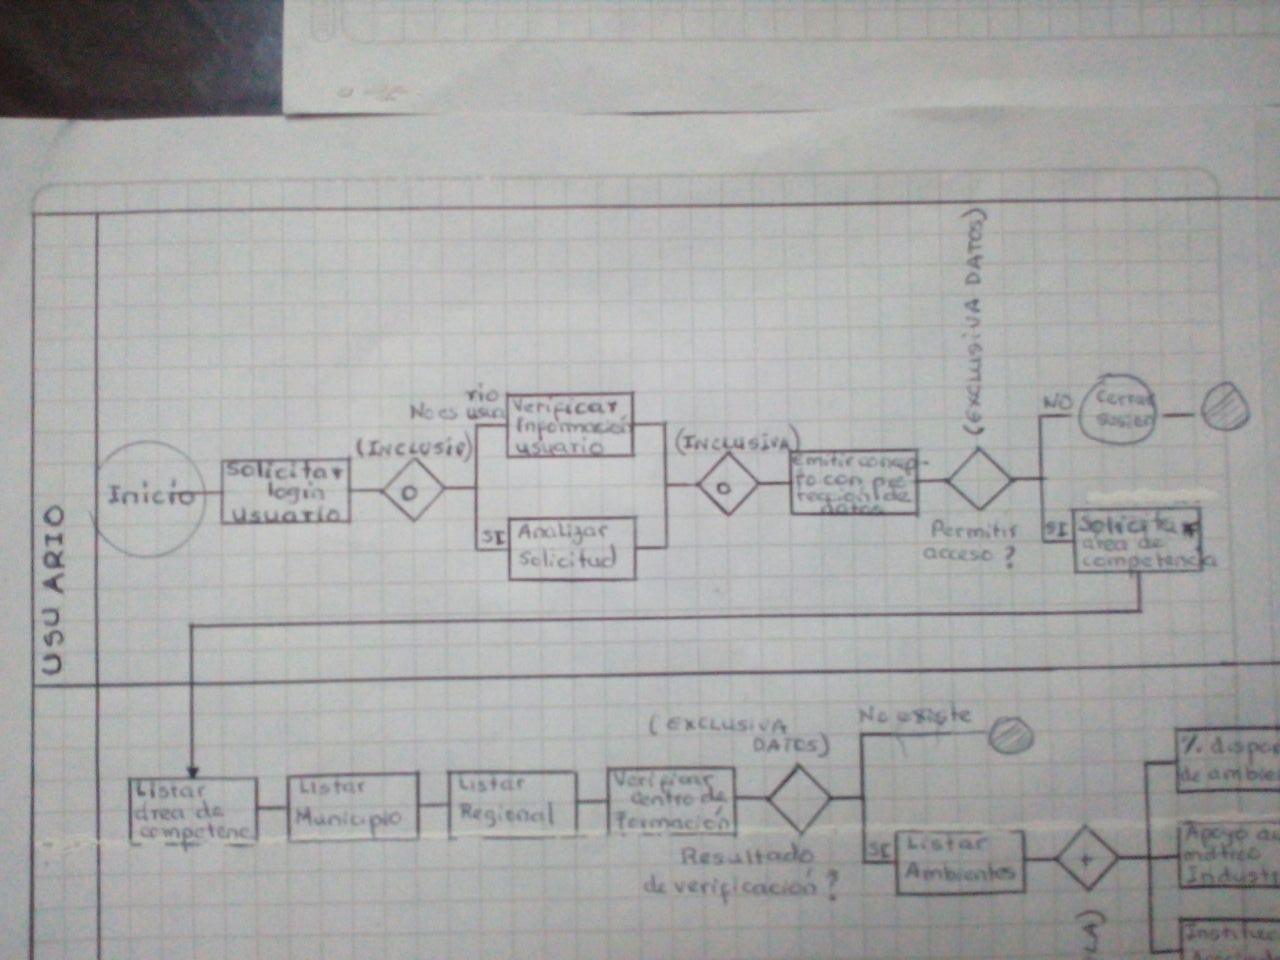 USUARIO
(EXCLUSIVA DATOS)
Inicio
Solicitar
login
usuario
(INCLUSIV
No es usua
rio
SI
Verificar
Información
usuario
Analizar
Solicitud
(INCLUSIVA)
Emitir concep-
to con pro
tección de
datos
Permitir
acceso?
NO
Cerrar
SI
Solicitar
área de
competencia
Listar
área de
competenc
Listar
Municipio
Listar
Regional
Verificar
centro de
Formación
(EXCLUSIVA
DATOS)
Resultado
de verificación?
No existe
SI
Listar
Ambientes
+
% dispo
de ambie
Apoyo au
Indust
Instituc
LA)